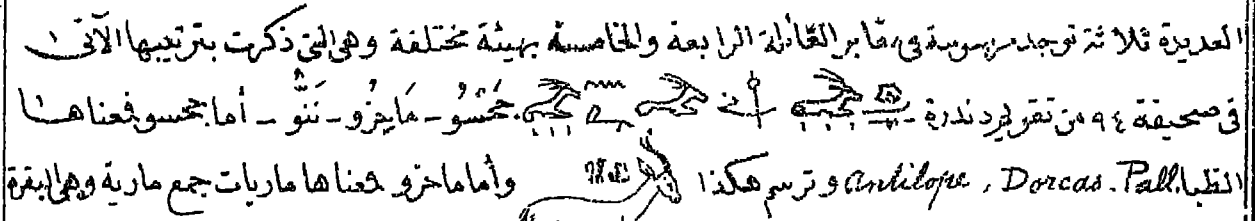 العديدة ثلاثة توجد مرسومة فى مقابر العائلة الرابعة والخامسة بهيئة مختلفة وهى التى ذكرت بترتيبها الآتى
فى صحيفة ٩٤ من تقويم دندرة - جَحْسُو - مَايخرُو - نَنُّو - أما جحسو فمعناها
الظبا Antilope, Dorcas. Pall. وترسم هكذا وأما ماخرو فمعناها ماريات جمع مارية وهى البقرة